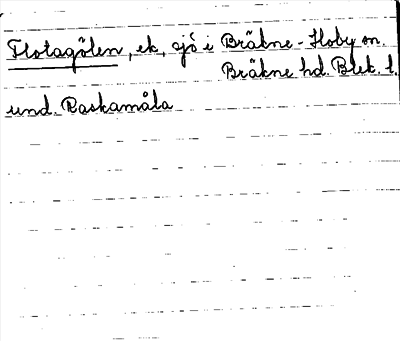 Flotagölen, ek, sjö i Bräkne-Hoby sn.
Bräkne hd. Blek. l.
und. Raskamåla